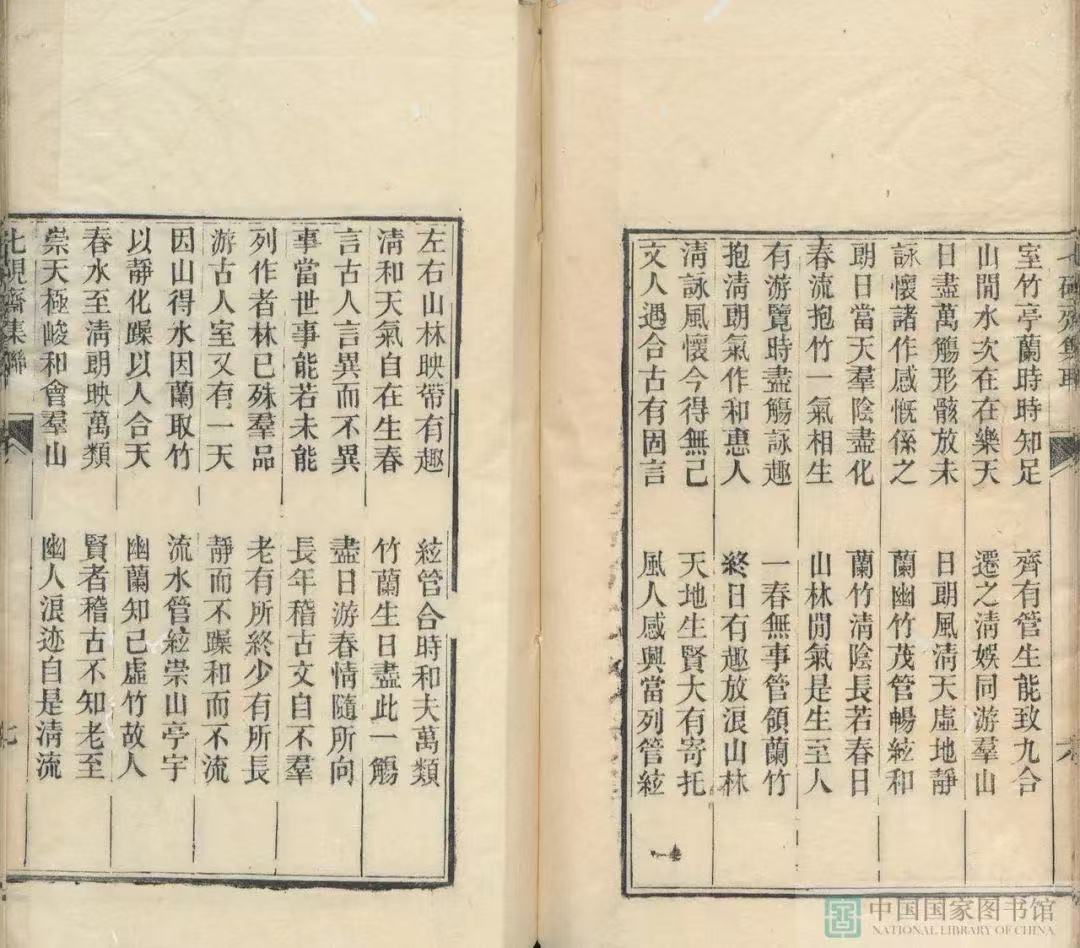 七硯齋集聯 六
室竹亭蘭時時知足 齊有管生能致九合
山閒水次在在樂天 遷之淸娛同游羣山
日盡萬觴形骸放未 日朗風淸天虛地靜
詠懷諸作感慨係之 蘭幽竹茂管暢絃和
朗日當天羣陰盡化 蘭竹淸陰長若春日
春流抱竹一氣相生 山林閒氣是生至人
有游覽時盡觴詠趣 一春無事管領蘭竹
抱淸朗氣作和惠人 終日有趣放浪山林
淸詠風懷今得無已 天地生賢大有寄托
文人遇合古有固言 風人感興當列管絃
左右山林映帶有趣 絃管合時和夫萬類
淸和天氣自在生春 竹蘭生日盡此一觴
言古人言異而不異 盡日游春情隨所向
事當世事能若未能 長年稽古文自不羣
列作者林已殊羣品 老有所終少有所長
游古人室又有一天 靜而不躁和而不流
因山得水因蘭取竹 流水管絃崇山亭宇
以靜化躁以人合天 幽蘭知己虛竹故人
春水至淸朗映萬類 賢者稽古不知老至
崇天極峻和會羣山 幽人浪迹自是淸流
七硯齋集聯 七
中国国家图书馆
NATIONAL LIBRARY OF CHINA